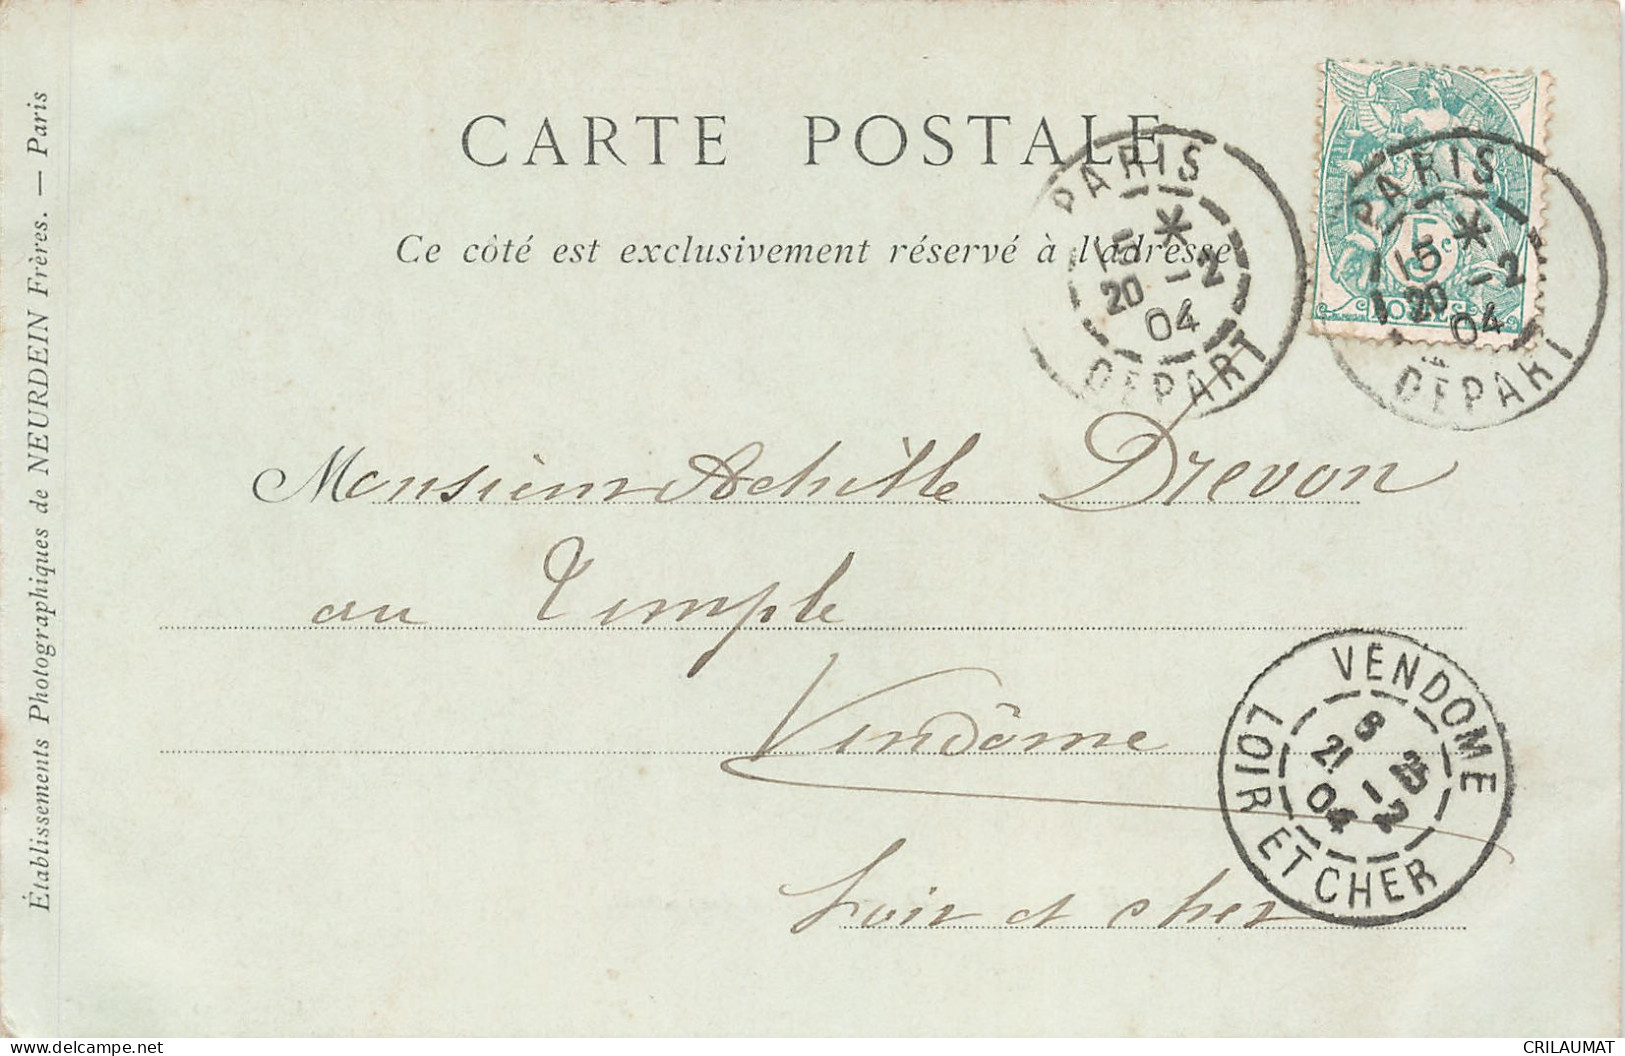 CARTE POSTALE
Ce côté est exclusivement réservé à l'adresse
Établissements Photographiques de NEURDEIN Frères. — Paris
PARIS
15 *
20 -2
04
DEPART
PARIS
15 *
20 -2
04
DEPART
5c
POSTES
Monsieur Achille Drevon
au Temple
Vendôme
Loir et cher
VENDOME
6
21 - 2
04
LOIR ET CHER
delcampe.net
CRILAUMAT